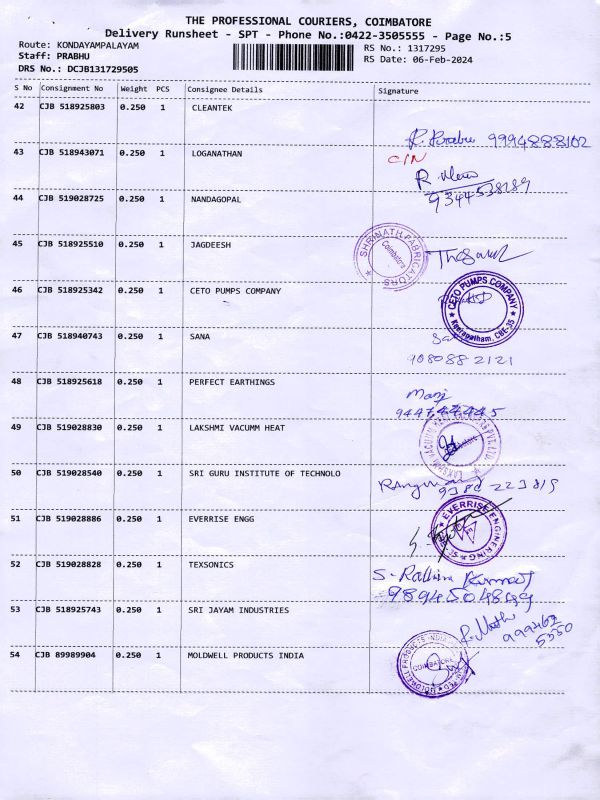 THE PROFESSIONAL COURIERS, COIMBATORE
Delivery Runsheet - SPT - Phone No.:0422-3505555 - Page No.:5
Route: KONDAYAMPALAYAM
RS No.: 1317295
Staff: PRABHU
RS Date: 06-Feb-2024
DRS No.: DCJB131729505
S No Consignment No Weight PCS Consignee Details Signature
42 CJB 518925803 0.250 1 CLEANTEK
R. Prabu 9994888102
43 CJB 518943071 0.250 1 LOGANATHAN C/N
R.
9344538189
44 CJB 519028725 0.250 1 NANDAGOPAL
45 CJB 518925510 0.250 1 JAGDEESH
SHRINATH FABRICATORS
Coimbatore
46 CJB 518925342 0.250 1 CETO PUMPS COMPANY
CETO PUMPS COMPANY
Keeranatham, CBE-35
47 CJB 518940743 0.250 1 SANA
908088 2121
48 CJB 518925618 0.250 1 PERFECT EARTHINGS
Mani
49 CJB 519028830 0.250 1 LAKSHMI VACUMM HEAT
50 CJB 519028540 0.250 1 SRI GURU INSTITUTE OF TECHNOLO
51 CJB 519028886 0.250 1 EVERRISE ENGG
EVERRISE ENGINEERING
52 CJB 519028828 0.250 1 TEXSONICS
S. Rathina Kumar
53 CJB 518925743 0.250 1 SRI JAYAM INDUSTRIES
999462
5550
54 CJB 89989904 0.250 1 MOLDWELL PRODUCTS INDIA
COIMBATORE